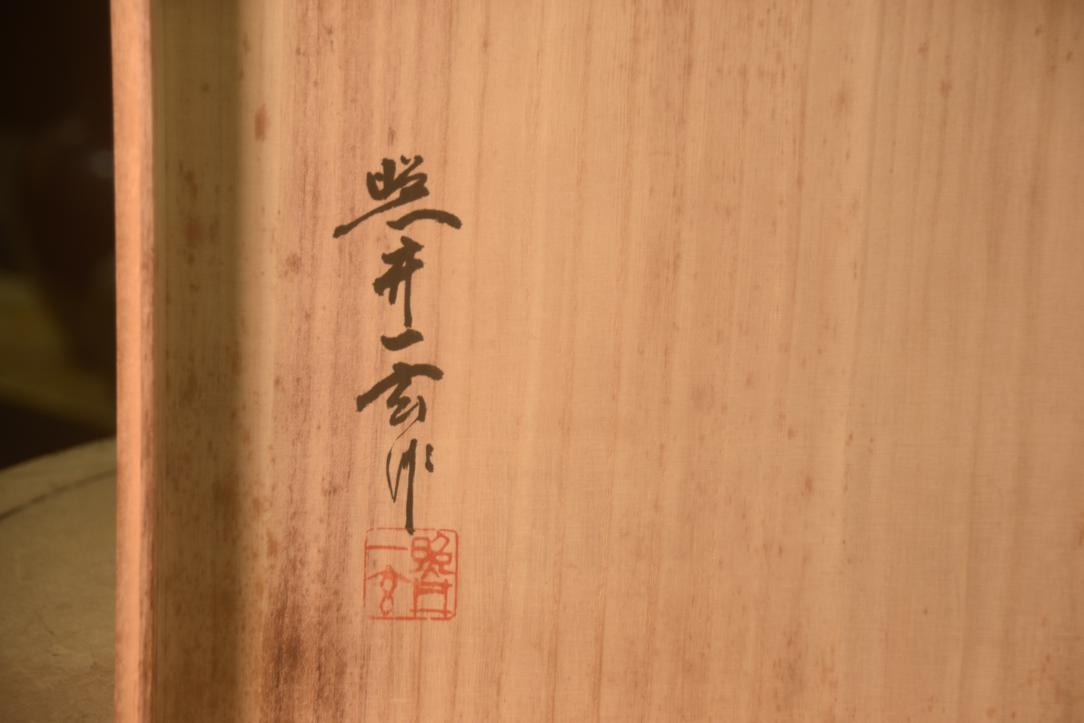 照井一玄作
照井
一玄